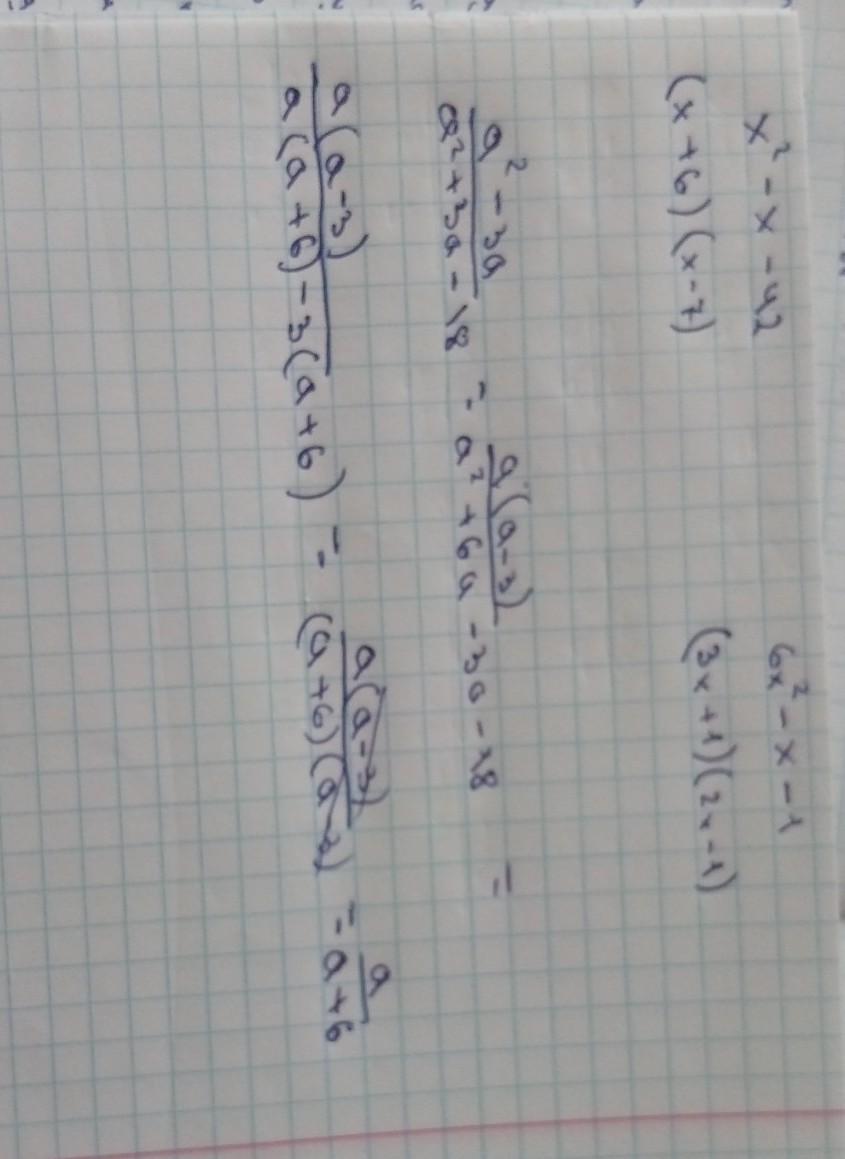 x² - x - 42
6x² - x - 1
(x + 6)(x - 7)
(3x + 1)(2x - 1)
a² - 3a / a² + 3a - 18 = a(a - 3) / a² + 6a - 3a - 18 =
a(a - 3) / a(a + 6) - 3(a + 6) = a(a - 3) / (a + 6)(a - 3) = a / a + 6